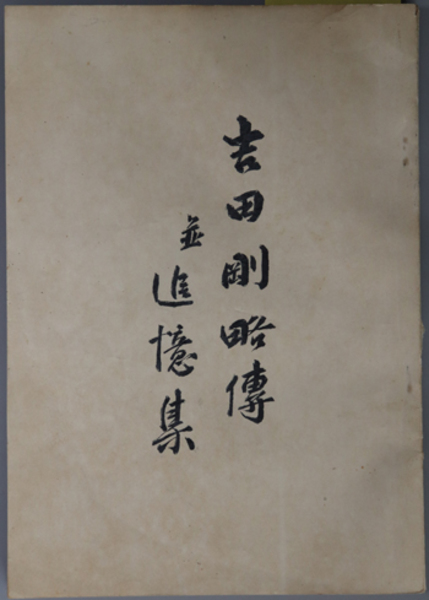 吉田剛略傳
並追憶集